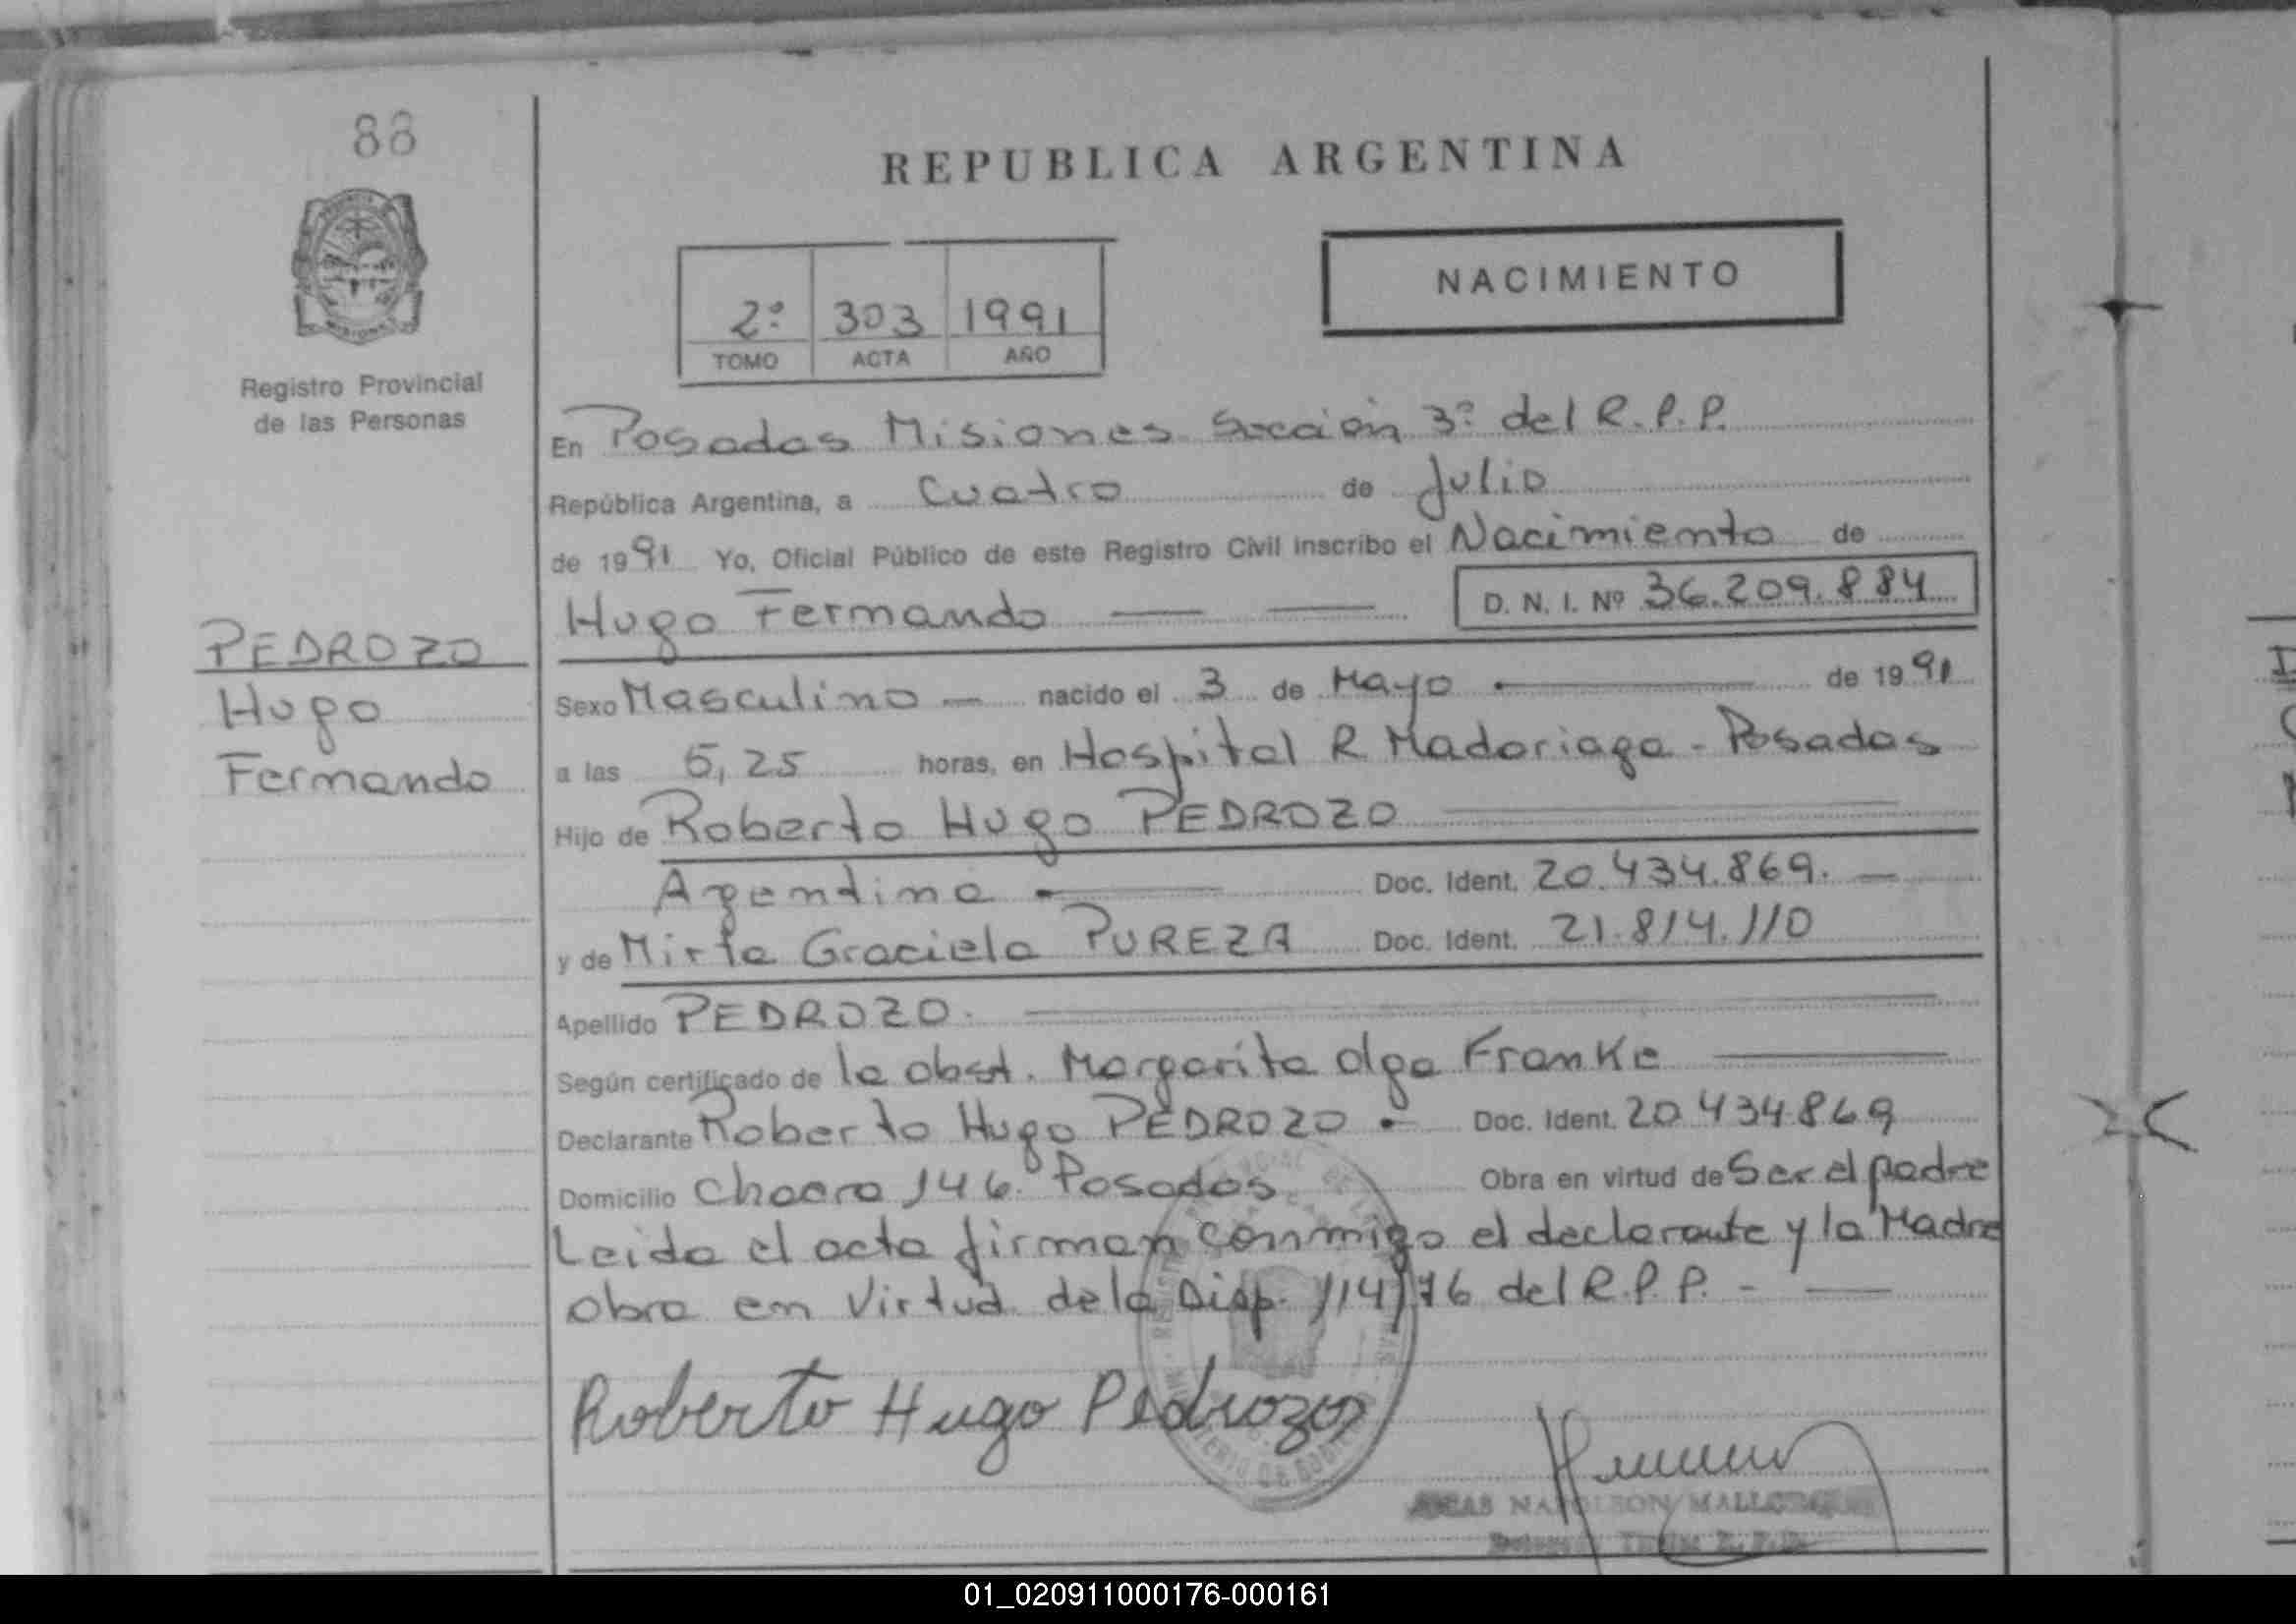 88
REPUBLICA ARGENTINA
NACIMIENTO
2º 303 1991
TOMO ACTA AÑO
Registro Provincial
de las Personas
En Posadas Misiones Sección 3º del R.P.P.
República Argentina, a Cuatro de Julio
de 1991 Yo, Oficial Público de este Registro Civil inscribo el Nacimiento de
Hugo Fernando D. N. I. Nº 36.209.884
PEDROZO
Hugo
Fernando
Sexo Masculino — nacido el 3 de Mayo de 1991
a las 5,25 horas, en Hospital R Madariaga - Posadas
Hijo de Roberto Hugo PEDROZO
Argentina Doc. Ident. 20.434.869. —
y de Mirta Graciela PUREZA Doc. Ident. 21.814.110
Apellido PEDROZO.
Según certificado de la obst. Margarita Olga Franke
Declarante Roberto Hugo PEDROZO Doc. Ident. 20.434.869
Domicilio Chacra 146. Posadas Obra en virtud de Ser el padre
Leida el acta firman conmigo el declarante y la Madre
obra en Virtud de la Disp. 114/76 del R.P.P. - —
Roberto Hugo Pedrozo
NAPOLEON MALLORQUIN
01_020911000176-000161